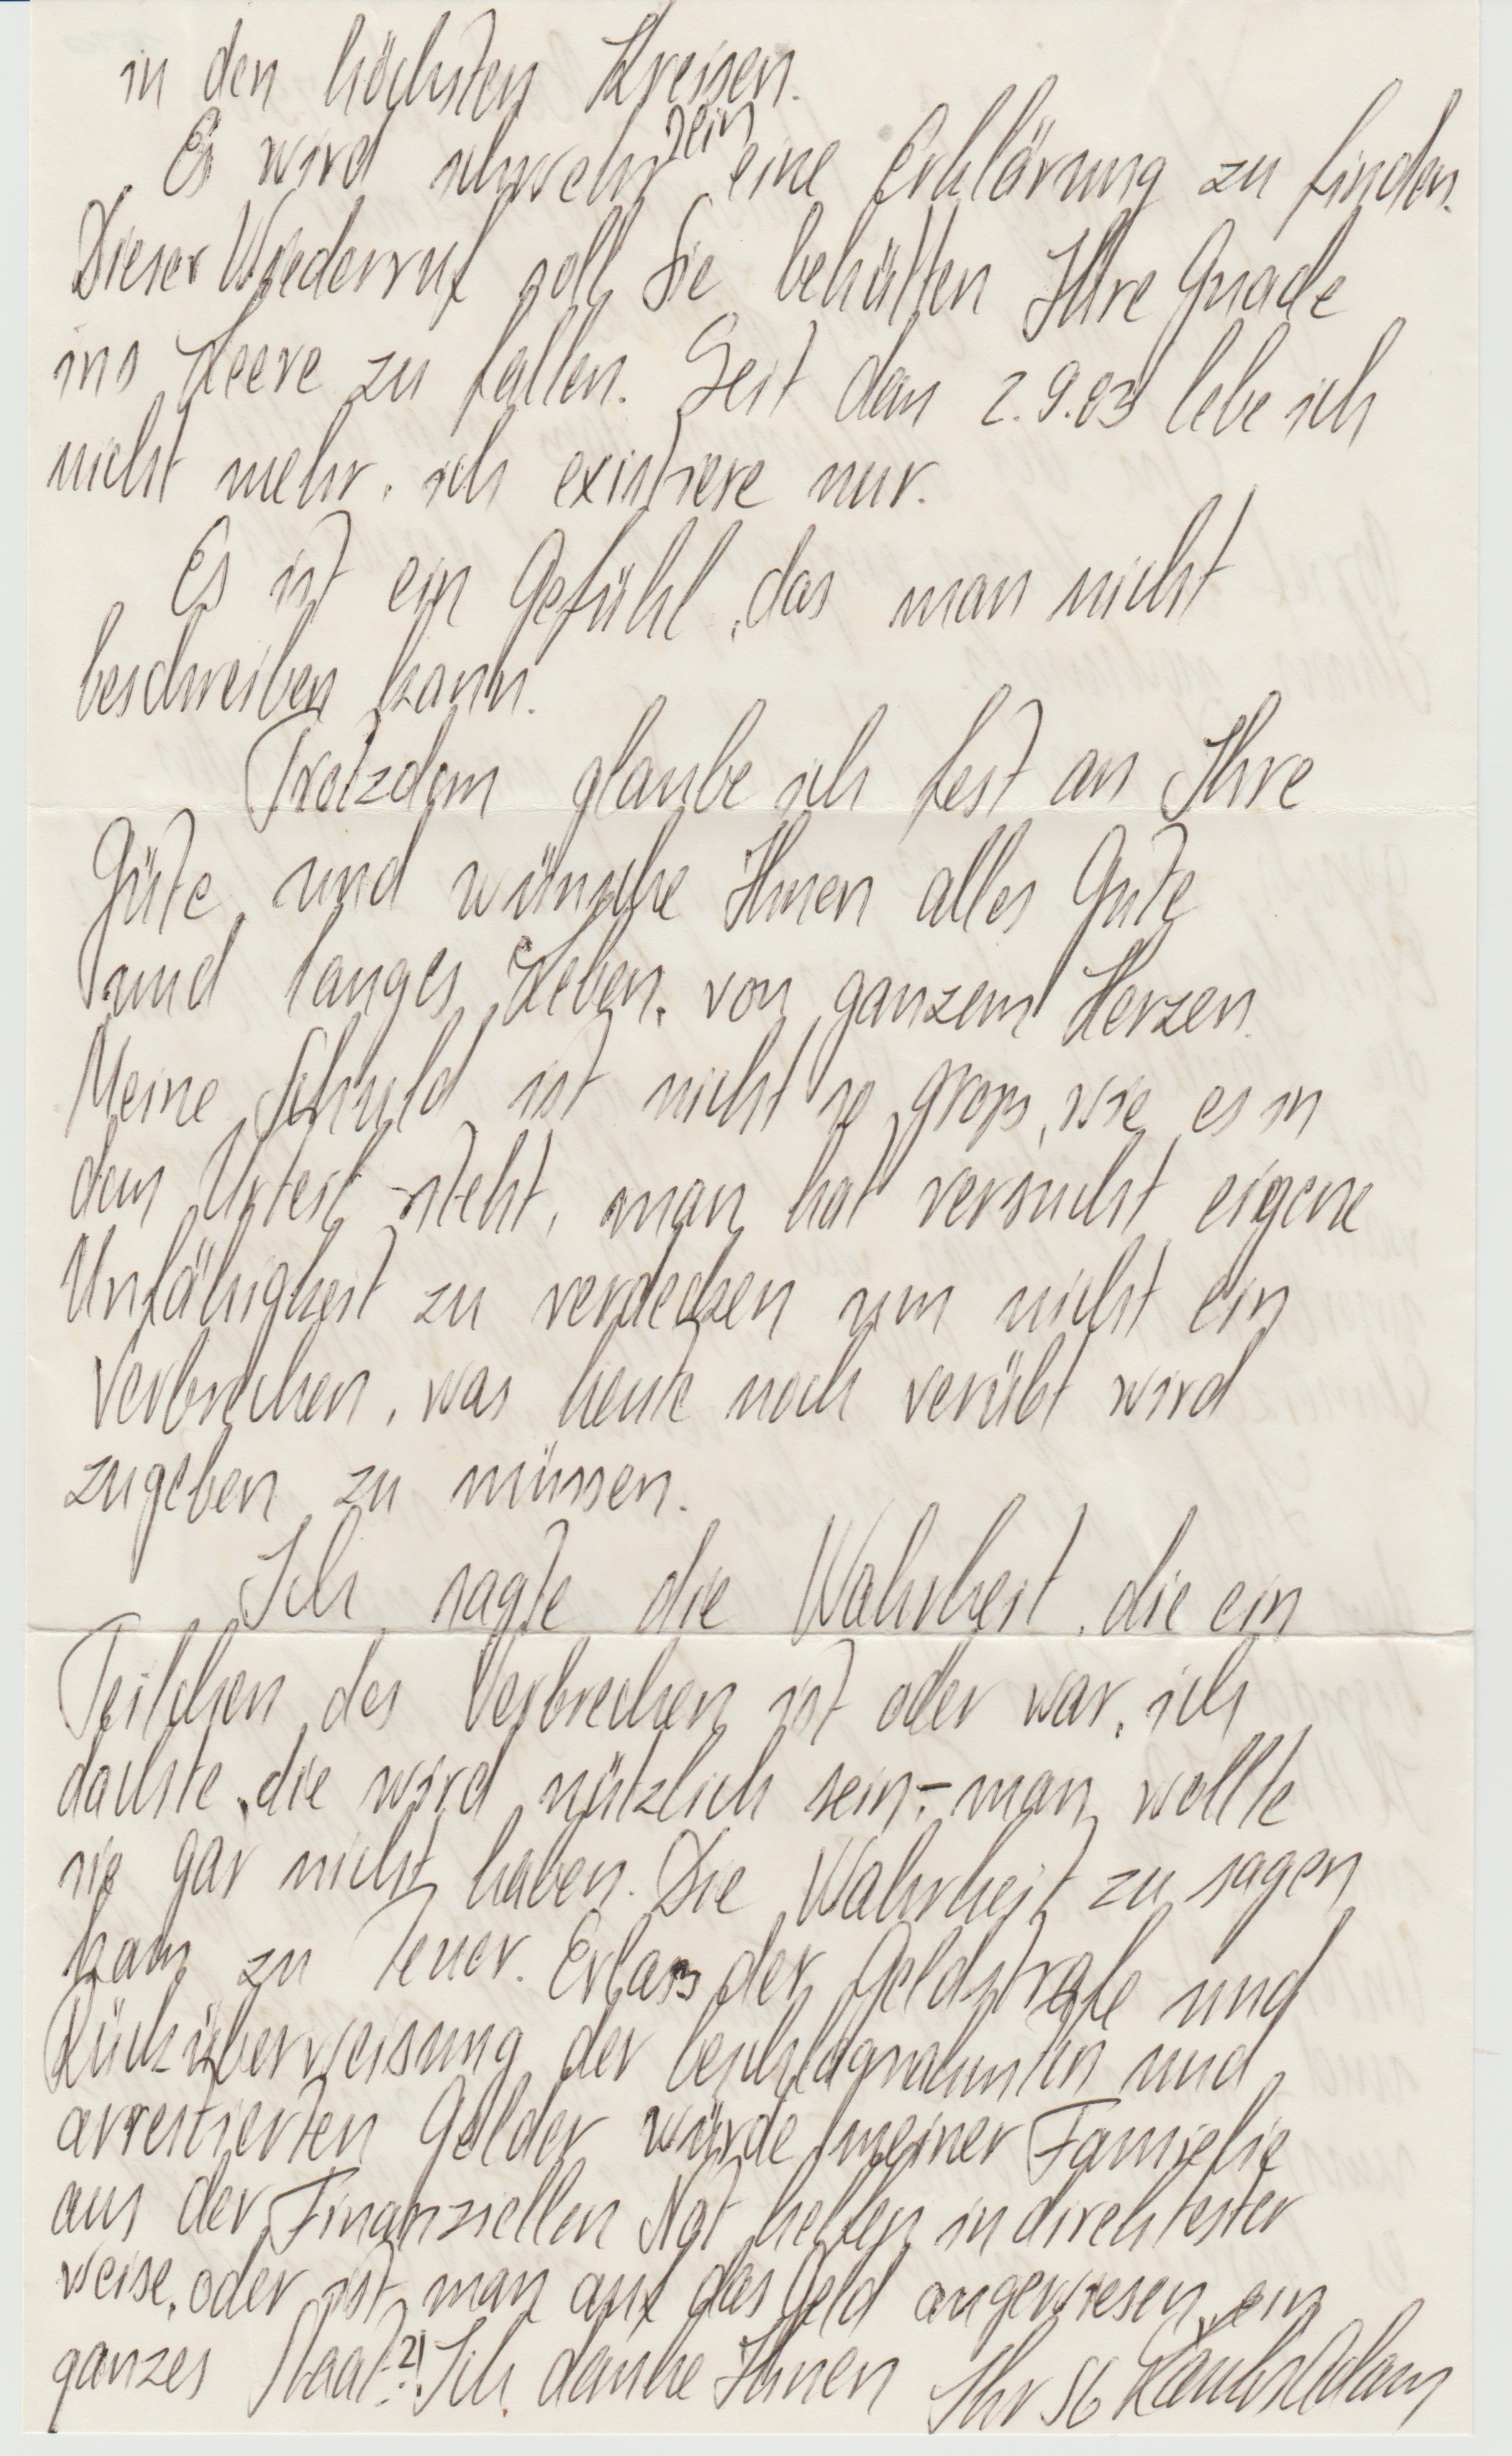 in den höchsten Kreisen.
Es wird schwehr sein eine Erklärung zu finden.
Dieser Wiederruf soll Sie behütten Ihre Gnade
ins Leere zu fallen. Seit dem 2.9.83 lebe ich
nicht mehr, ich existiere nur.
Es ist ein Gefühl, das man nicht
beschreiben kann.
Trotzdem glaube ich fest an Ihre
Güte und wünsche Ihnen alles Gute
und langes Leben, von ganzem Herzen.
Meine Schuld ist nicht so gross, wie es in
dem Urteil steht, man hat versucht eigene
Unfähigkeit zu verdecken um nicht ein
Verbrechen, was heute noch verübt wird
zugeben zu müssen.
Ich sagte die Wahrheit, die ein
Teilchen des Verbrechen ist oder war, ich
dachte, die wird nützlich sein,- man wollte
sie gar nicht haben. Die Wahrheit zu sagen
kam zu teuer. Erlass der Geldstrafe und
Rücküberweisung der beschlagnahmten und
arrestierten Gelder würde meiner Familie
aus der Finanziellen Not helfen in direktester
weise, oder ist man auf das Geld angewiesen, ein
ganzes Staat?! Ich danke Ihnen Ihr SG Adam